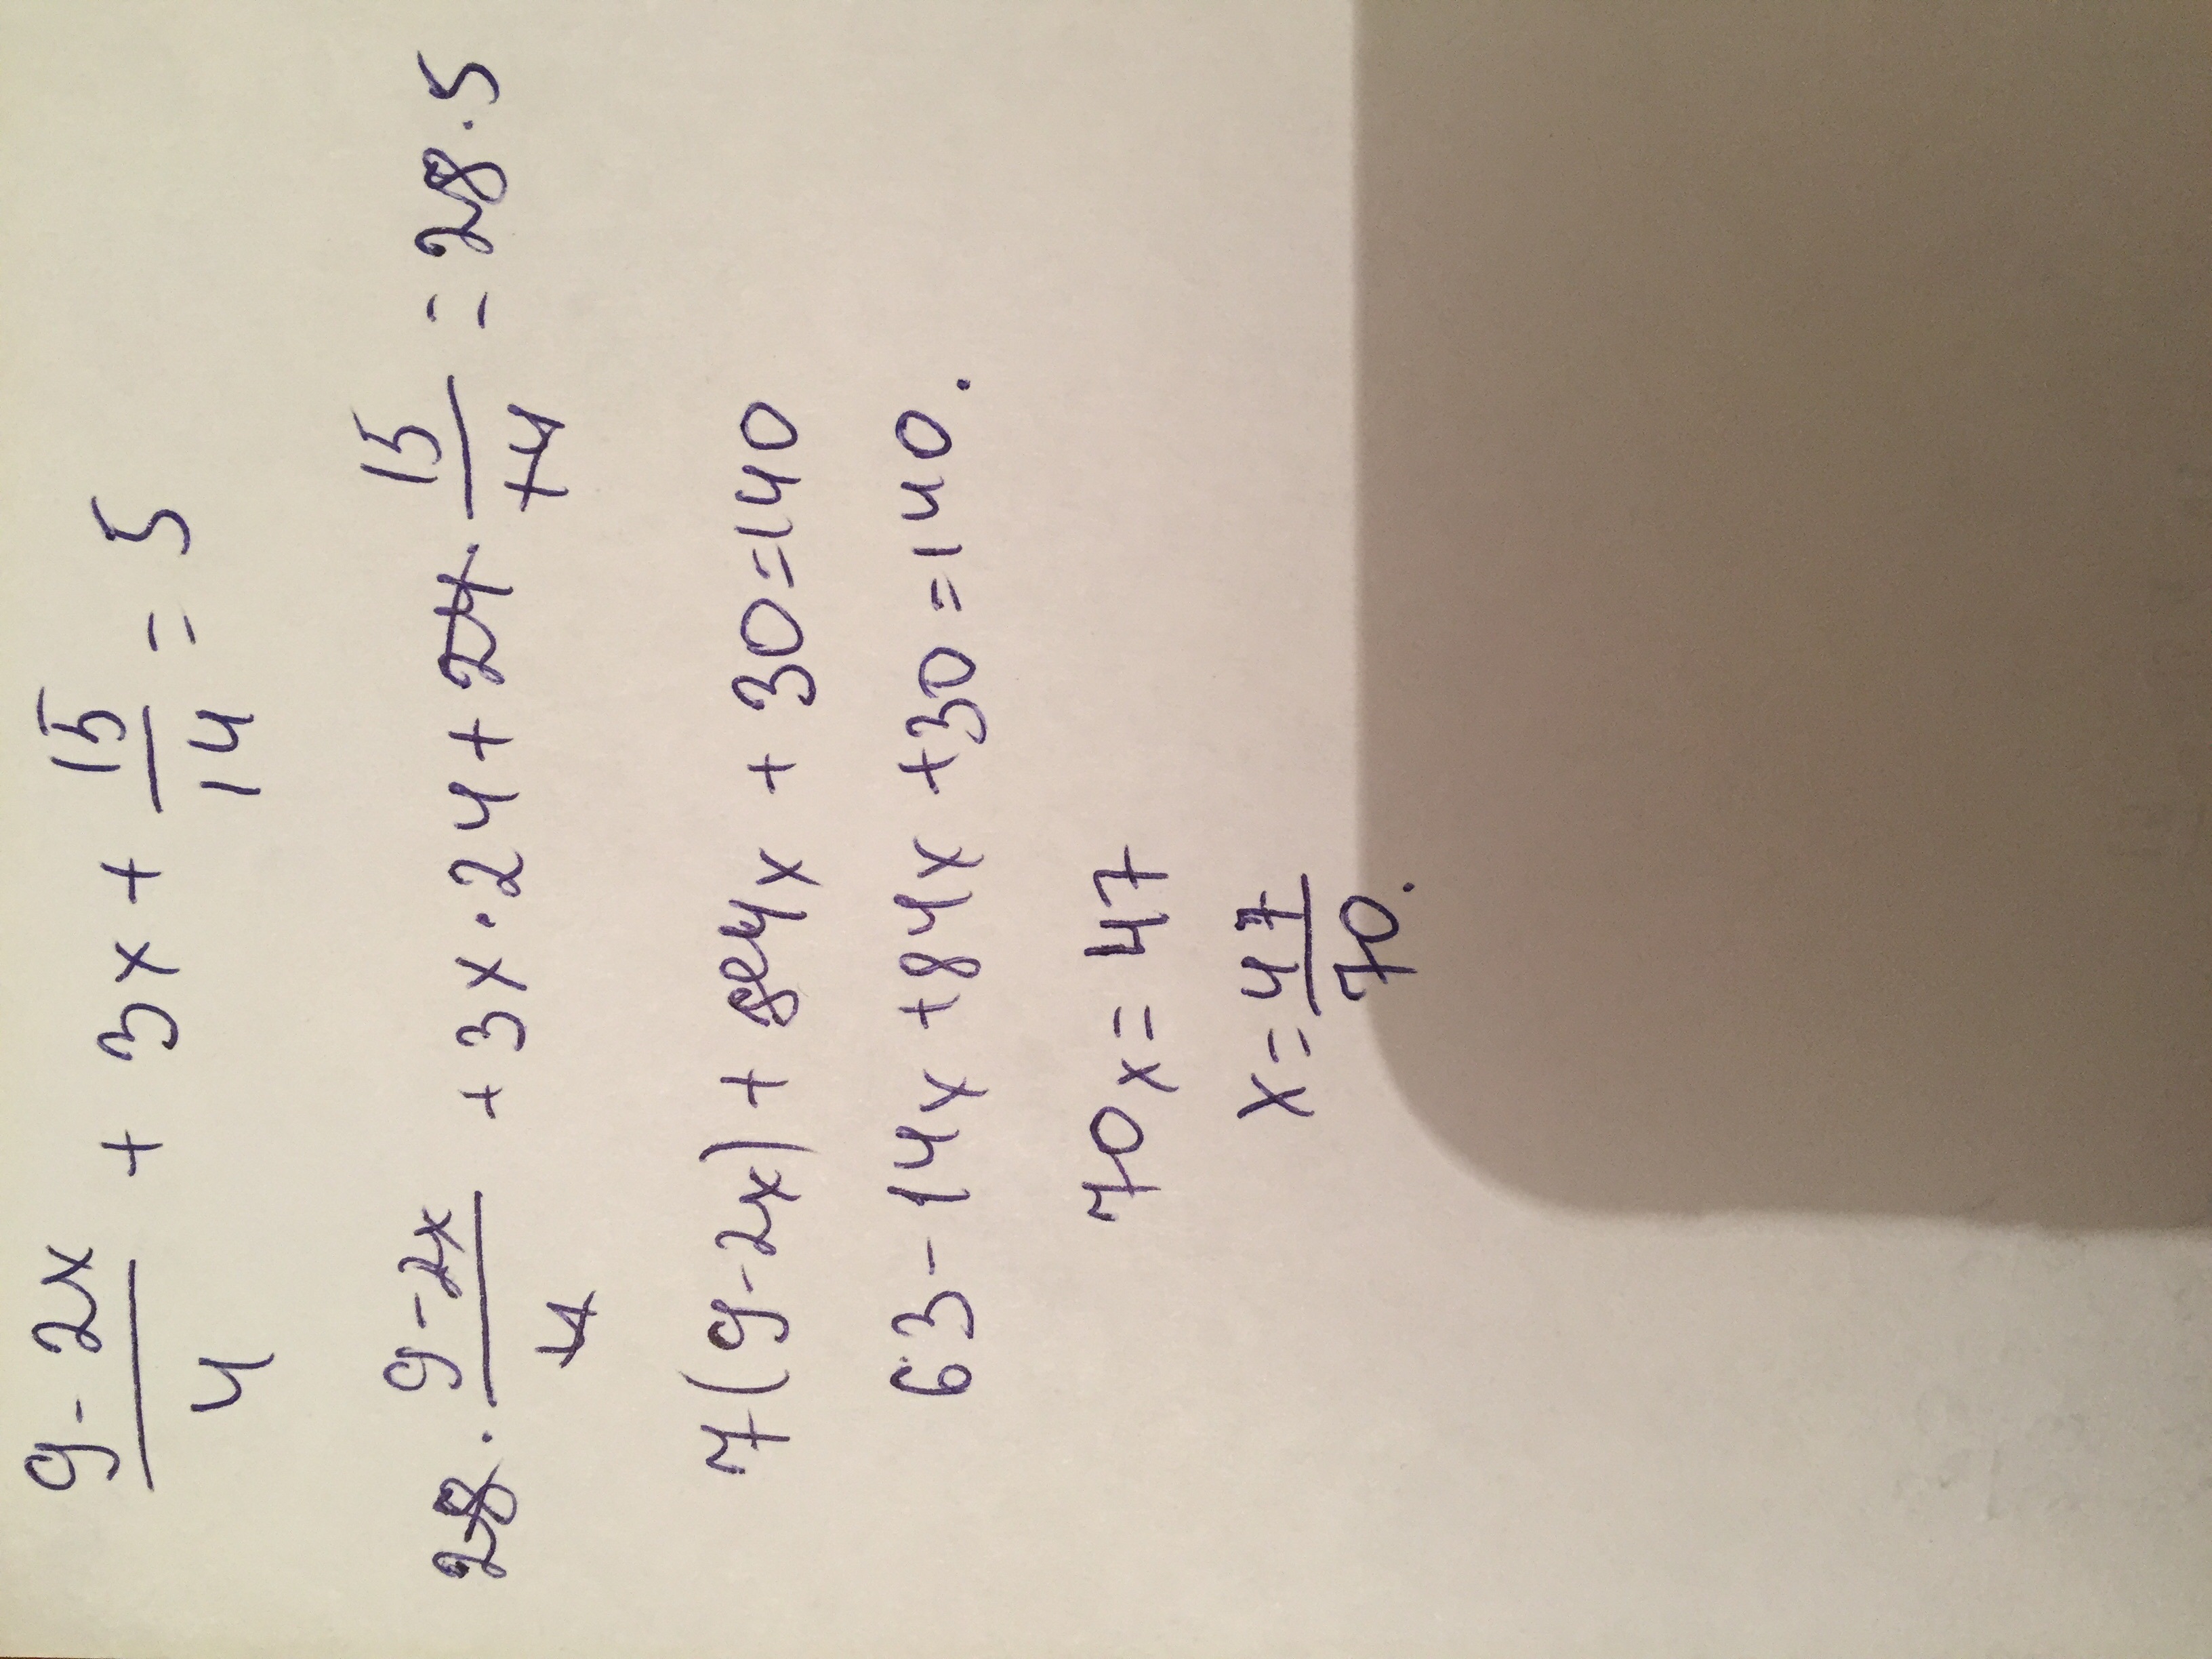 9-2x/4 + 3x + 15/14 = 5
28 · 9-2x/4 + 3x · 24 + 24 · 15/14 = 28 · 5
7(9-2x) + 84x + 30 = 140
63 - 14x + 84x + 30 = 140.
70x = 47
x = 47/70.